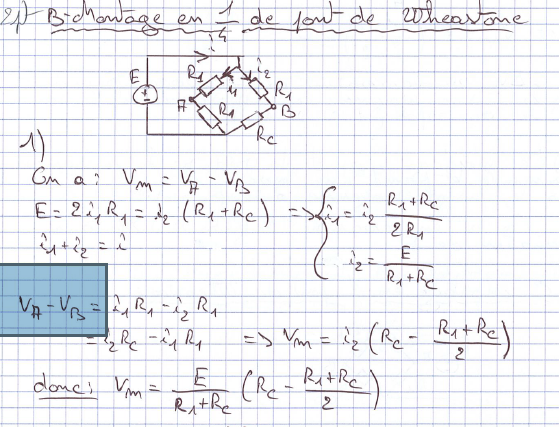 2) B-Montage en 1/4 de pont de Wheastone
i
E
R1
i1
i2
R1
A
R1
B
RC
1)
On a : Vm = VA - VB
E = 2 i1 R1 = i2 (R1 + RC) => { i1 = i2 (R1 + RC)/(2 R1)
i1 + i2 = i
i2 = E/(R1 + RC)
VA - VB = i1 R1 - i2 R1
= i2 RC - i1 R1 => Vm = i2 (RC - (R1 + RC)/2)
donc : Vm = E/(R1 + RC) (RC - (R1 + RC)/2)